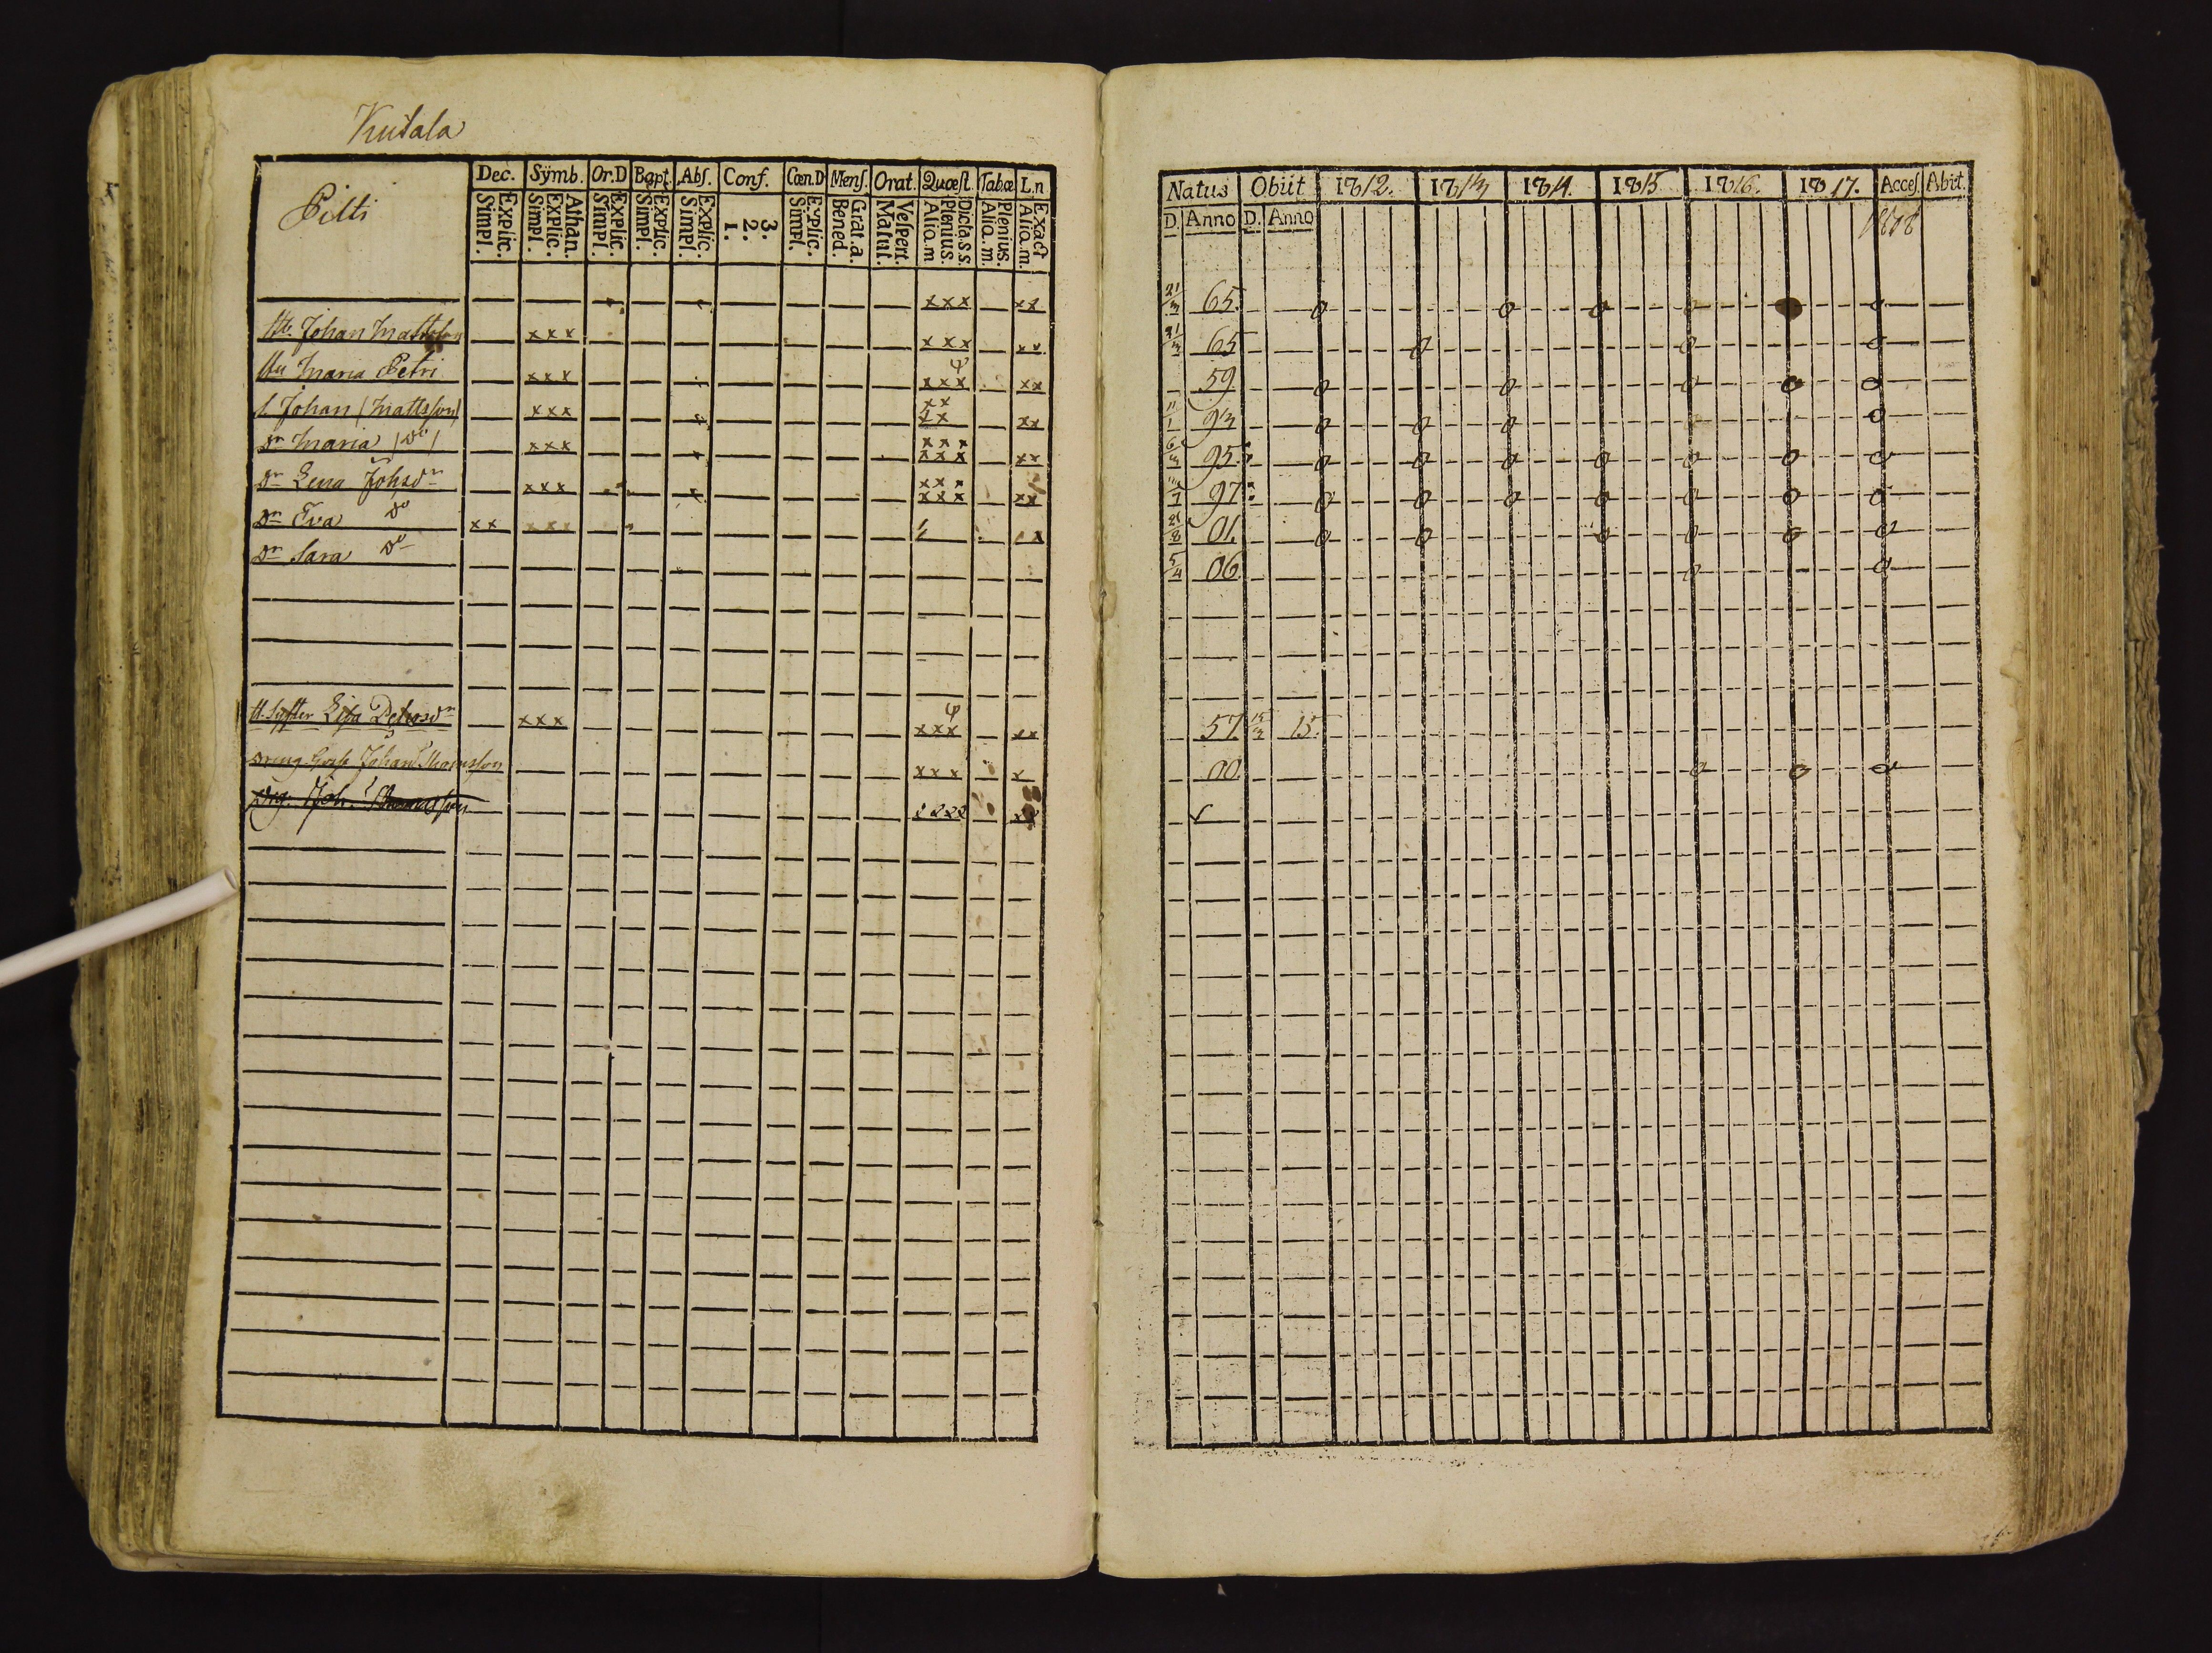 Kutala
Pilti
Dec. Sÿmb. Or.D Bapt. Abs. Conf. Cœn.D Mens. Orat. Quæst. Tabæ L.n
Explic. Simpl. Athan. Explic. Simpl. Explic. Simpl. Explic. Simpl. Explic. Simpl. 3. 2. 1. Explic. Simpl. Grat.a Bened. Vespert. Matut. Dicta.s.s. Plenius. Alia.m Plenius. Alia.m. Exact Alia.m.
xxx xx
Johan Mattsson xxx xxx xx
Maria Petri xxx xxx xx
s. Johan (Mattsson) xxx xx xx xx
Dr Maria (Do) xxx xxx xxx xx
Dr Lena Johsdr xxx xxx xxx xx
Dr Eva Do xx xxx
Dr Sara Do
Syster Lisa Petersdr xxx xxx xx
Dreng Johan Thomsson xxx x
Drg. Joh. Thomasson
Natus Obiit 1812. 1813 1814. 1815 1816. 1817. Acces. Abiit.
D. Anno D. Anno 1818
21/3 65.
21/3 65
59.
11/1 93
6/3 95
97
21/8 01.
5/4 06
57. 15/3 15.
00.